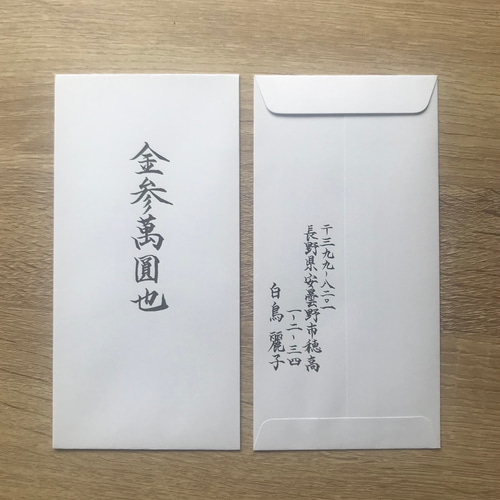 金参萬圓也
〒三九九-八二〇一
長野県安曇野市穂高
一-二-三四
白鳥麗子